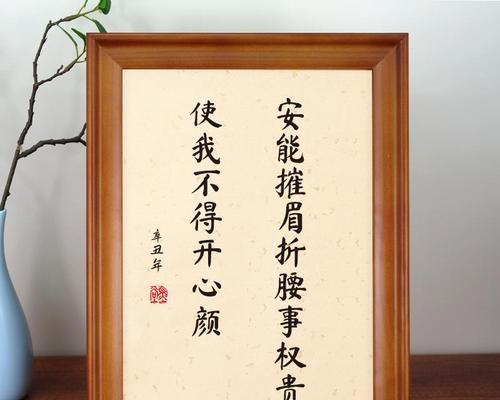 安能摧眉折腰事权贵
使我不得开心颜
辛丑年